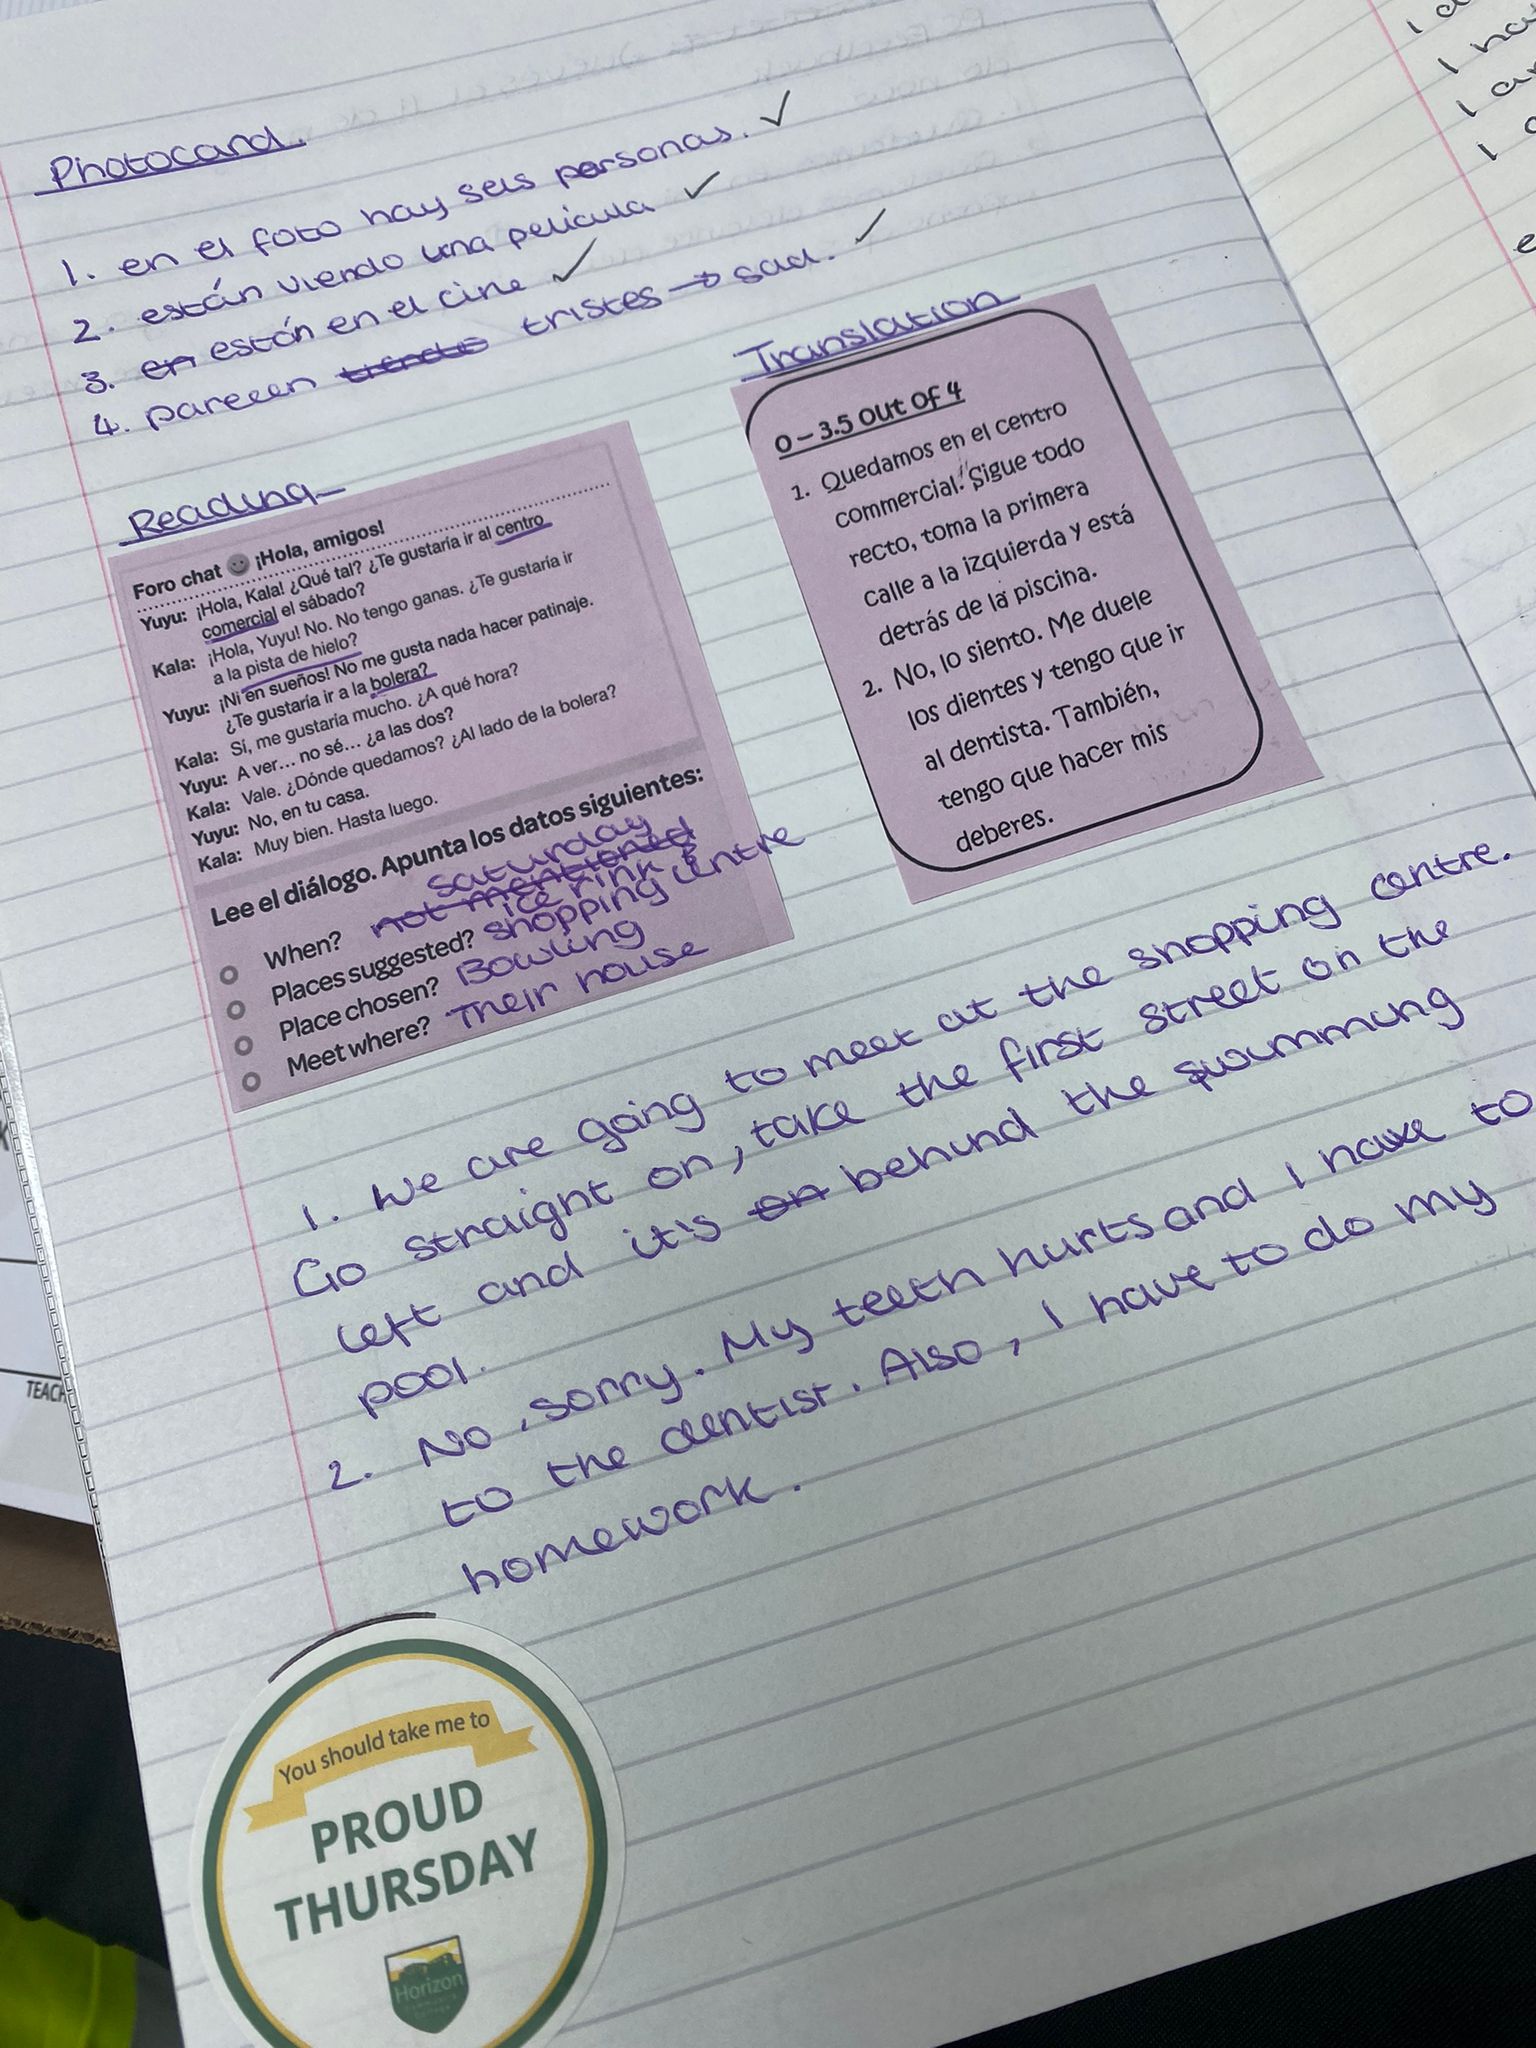 Photocard.
1. en el foto hay seis personas. ✓
2. están viendo una pelicula ✓
3. en están en el cine ✓
4. pareeen tristes → sad. ✓
Reading
Foro chat ¡Hola, amigos!
Yuyu: ¡Hola, Kala! ¿Qué tal? ¿Te gustaría ir al centro
comercial el sábado?
Kala: ¡Hola, Yuyu! No. No tengo ganas. ¿Te gustaría ir
a la pista de hielo?
Yuyu: ¡Ni en sueños! No me gusta nada hacer patinaje.
¿Te gustaría ir a la bolera?
Kala: Sí, me gustaría mucho. ¿A qué hora?
Yuyu: A ver... no sé... ¿a las dos?
Kala: Vale. ¿Dónde quedamos? ¿Al lado de la bolera?
Yuyu: No, en tu casa.
Kala: Muy bien. Hasta luego.
Lee el diálogo. Apunta los datos siguientes:
saturday
When? not mentioned
ice rink &
Places suggested? shopping centre
Place chosen? Bowling
Meet where? Their house
Translation
0 – 3.5 out of 4
1. Quedamos en el centro
commercial. Sigue todo
recto, toma la primera
calle a la izquierda y está
detrás de la piscina.
2. No, lo siento. Me duele
los dientes y tengo que ir
al dentista. También,
tengo que hacer mis
deberes.
1. We are going to meet at the shopping centre.
Go straight on, take the first street on the
left and it's on behind the swimming
pool.
2. No, sorry. My teeth hurts and I have to
to the dentist. Also, I have to do my
homework.
You should take me to
PROUD
THURSDAY
Horizon
TEACH